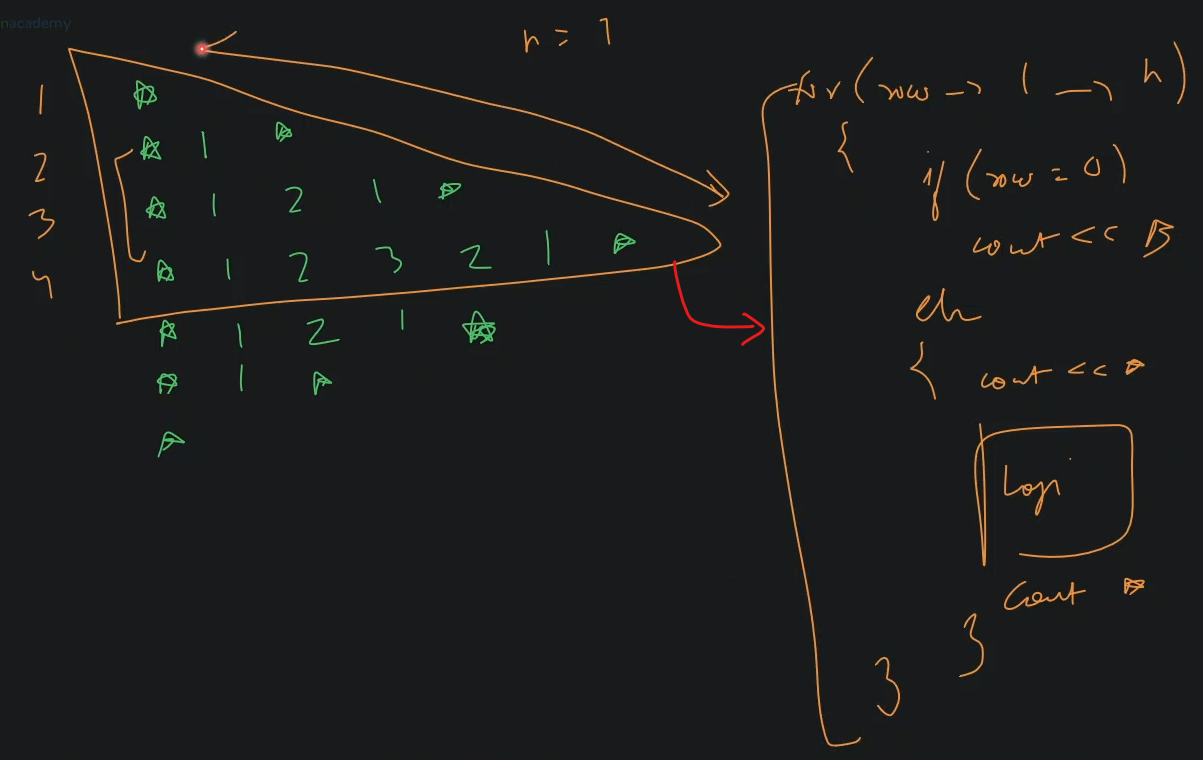 nacademy
n = 7
1 ☆
2 ☆ 1 ☆
3 ☆ 1 2 1 ☆
4 ☆ 1 2 3 2 1 ☆
☆ 1 2 1 ☆
☆ 1 ☆
☆
for (row → 1 → n)
{
if (row = 0)
cout <<
else
{ cout << ☆
Logi
Cout ☆
}
}